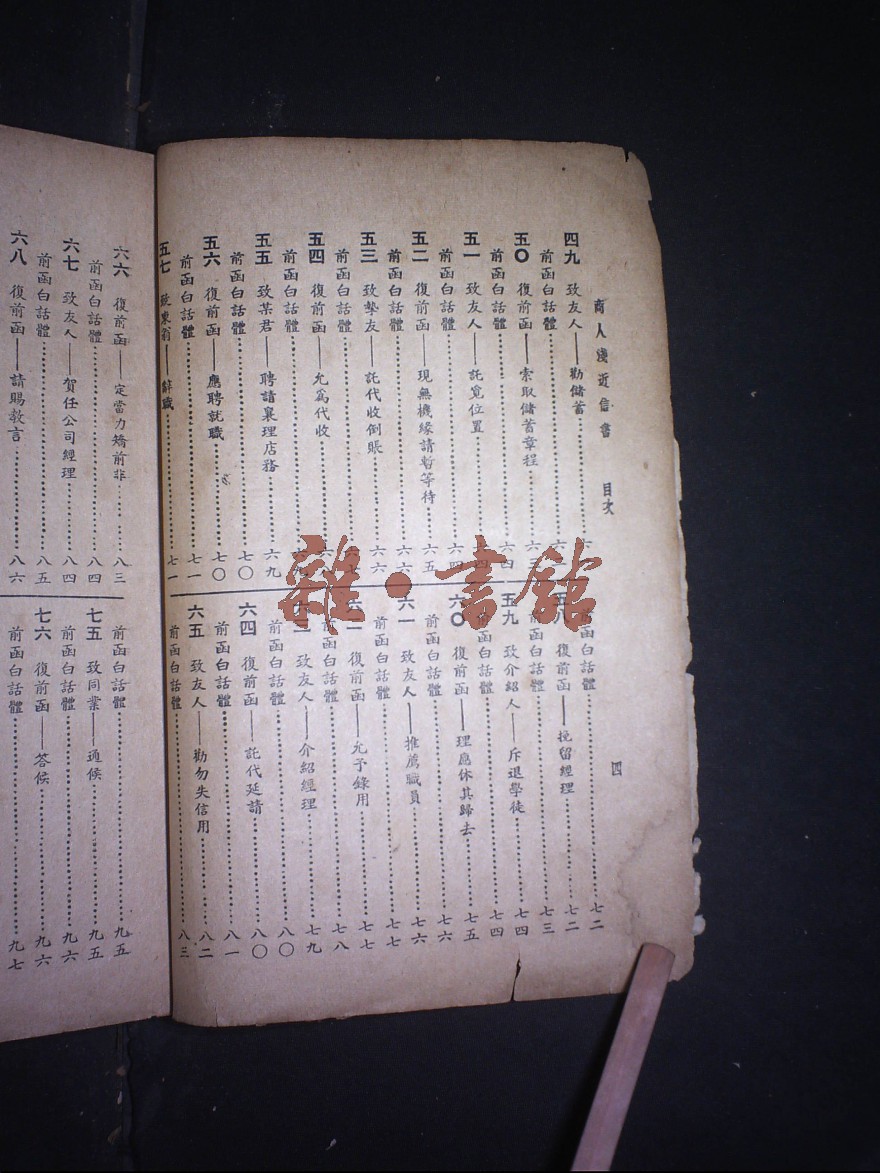 商人淺近信書　目次　四
四九　致友人——勸儲蓄
前函白話體
五〇　復前函——索取儲蓄章程
前函白話體……六四
五一　致友人——託覓位置
前函白話體……六四
五二　復前函——現無機緣請暫等待……六五
前函白話體……六六
五三　致摯友——託代收倒賬……六六
前函白話體
五四　復前函——允爲代收
前函白話體
五五　致某君——聘請襄理店務……六九
前函白話體……七〇
五六　復前函——應聘就職……七〇
前函白話體……七一
五七　致東翁——辭職……七一
前函白話體……七二
五八　復前函——挽留經理……七二
前函白話體……七三
五九　致介紹人——斥退學徒……七四
前函白話體……七四
六〇　復前函——理應休其歸去……七五
前函白話體……七六
六一　致友人——推薦職員……七六
前函白話體……七七
復前函——允予錄用……七七
前函白話體……七八
致友人——介紹經理……七九
前函白話體……八〇
六四　復前函——託代延請……八〇
前函白話體……八一
六五　致友人——勸勿失信用……八二
前函白話體……八三
六六　復前函——定當力矯前非……八三
前函白話體……八四
六七　致友人——賀任公司經理……八四
前函白話體……八五
六八　復前函——請賜教言……八六
前函白話體……九五
七五　致同業——通候……九五
前函白話體……九六
七六　復前函——答候……九六
前函白話體……九七
雜·書館